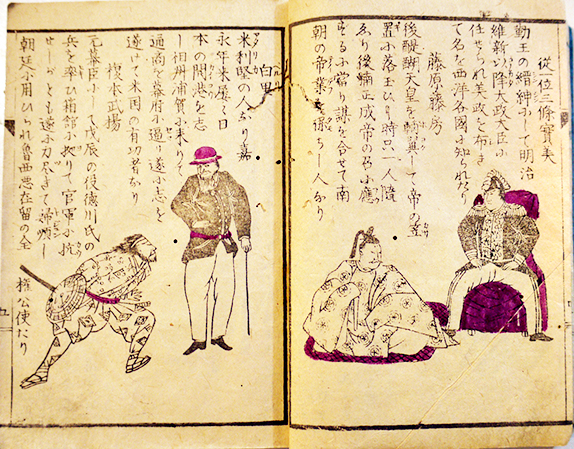 従一位三條實美
勤王の縉紳小して明治
維新以降太政大臣小
任せられ美政を布き
て名を西洋各國小知られな
藤原藤房
後醍醐天皇を輔翼して帝の笠
置小落玉ひし時只一人陪
ゐり後楠正成帝の召小應
ずるふ當り謀を合せて南
朝の帝業を保ちし人なり
白里
米利堅の人なり嘉
永年末屡々日
本の開港を志
し相州浦賀小来りて
通商を幕府小逼り遂小志を
遂げて米国の有功者なり
榎本武揚
元幕臣小して戊辰の役徳川氏の
兵を率ひ箱館小據りて官軍小抗
せしかとも遂小力尽きて歸順し
朝廷小用ひられ魯西亜在留の全
権公使たり
五